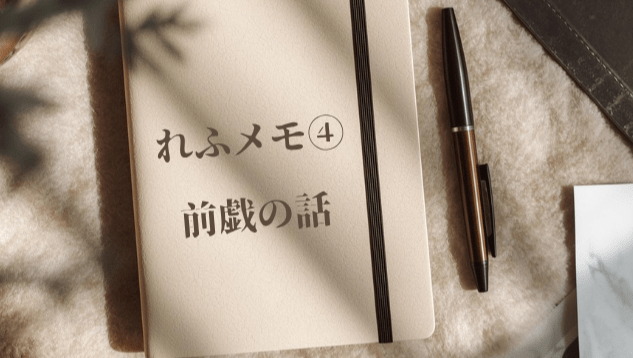 れふメモ④
前戯の話